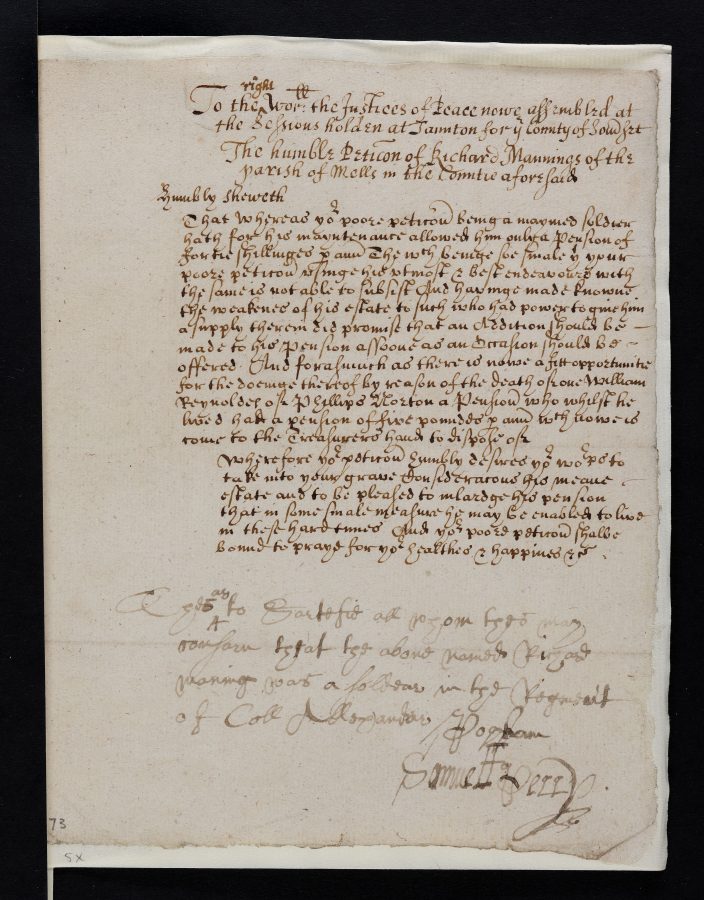 right
To the Wor: ll the Justices of Peace nowe assembled at
the Sessions holden at Taunton for ye County of Som̃set
The humble Peticon of Richard Mannings of the
parish of Mells in the Countie aforesaid
Humbly sheweth
That whereas yor poore peticon̄ beinge a maymed soldier
hath for his mayntenance allowed him only a Pension of
fortie shillinges p ann̄ The wch beinge soe smale yt your
poore peticon̄ usinge his utmost & best endeavours with
the same is not able to subsist And havinge made knowne
the weakenes of his estate to such who had power to give him
a supply therein did promise that an Addition should be
made to his pension assoone as an Occasion should be
offered And forasmuch as there is nowe a fitt opportunitie
for the doeinge thereof by reason of the death of one William
Reynoldes of Phillips Norton a Pension̄ who whilst he
lived had a pension of five poundes p ann̄ wch nowe is
come to the Treasurers hand to dispose of
Wherefore yor peticon̄ humbly desires yor wops to
take into your grave Consideracons his meane
estate and to be pleased to inlardge his pension
that in some smale measure he may be enabled to live
in these hard times And yor poore peticon̄ shalbe
bound to praye for yor healthes & happines &c
as
Thes to Sartefie all whom thes may
consarn that the above named Richard
maning was a soldear in the Regment
of Coll Allexander Popham
Samuell Perry
73
5x